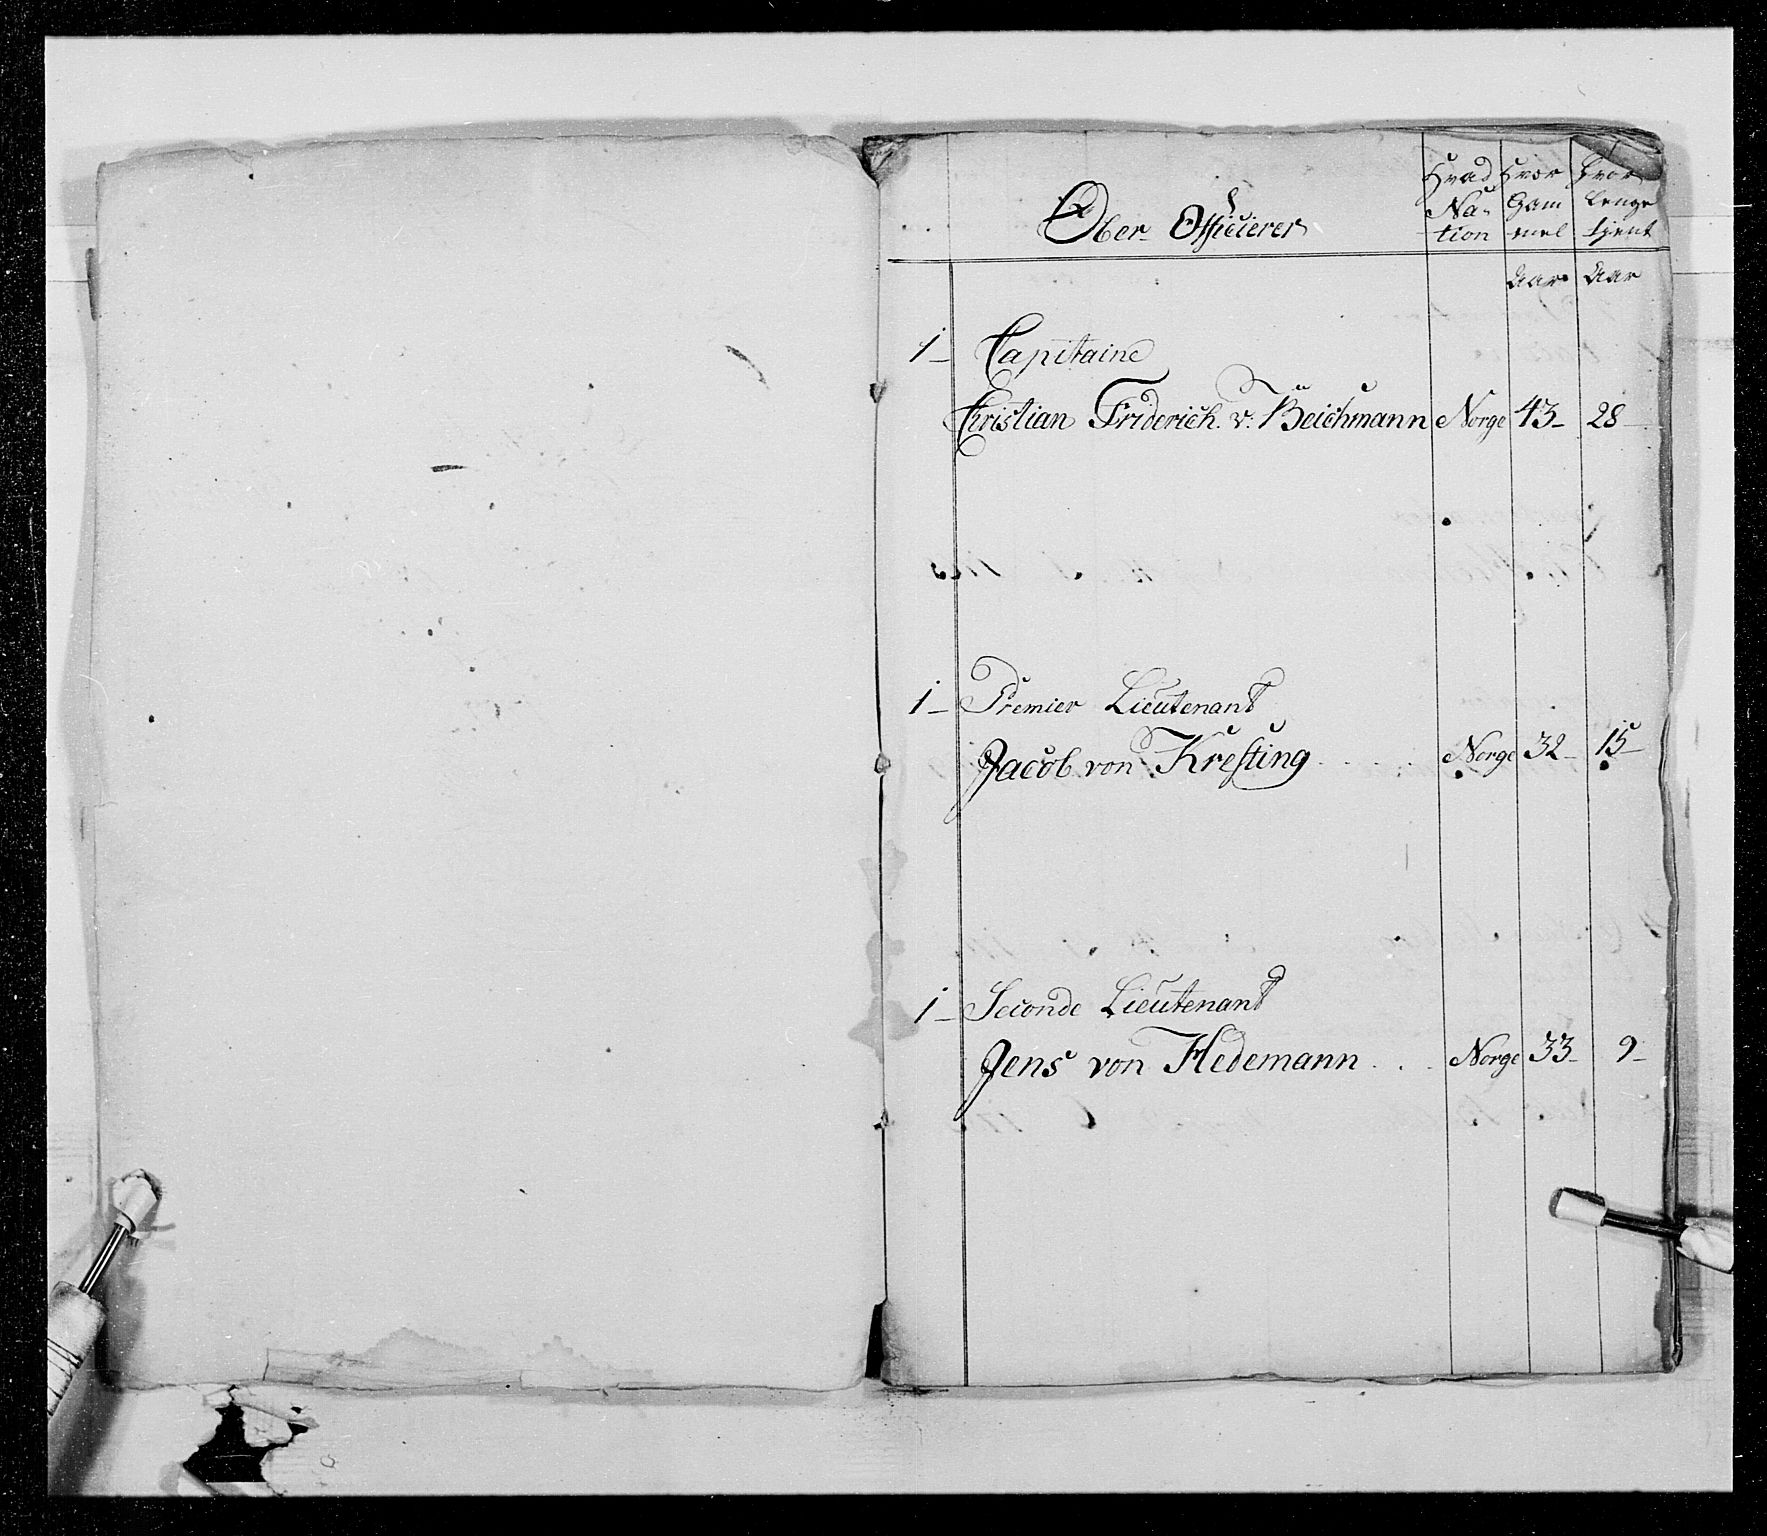 Ober Officierer
Hvad Na- tion
Hvor Gam mel
Hvor Lenge tjent
Aar Aar
1 Capitaine
Christian Friderich v. Beichmann Norge 43 28
1 Premier Lieutenant
Jacob von Kresting Norge 32 15
1 Seconde Lieutenant
Jens von Hedemann Norge 33 9